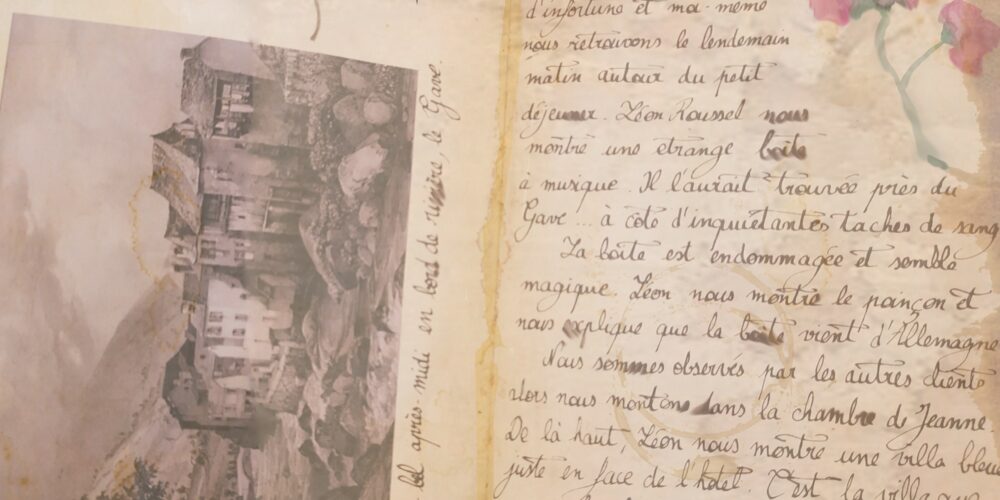 bel après-midi en bord de rivière, le Gave.
d'infortune et moi-même
nous retrouvons le lendemain
matin autour du petit
déjeuner. Léon Roussel nous
montre une étrange boîte
à musique. Il l'aurait trouvée près du
Gave... à côté d'inquiétantes taches de sang
La boîte est endommagée et semble
magique. Léon nous montre le poinçon et
nous explique que la boîte vient d'Allemagne
Nous sommes observés par les autres clients
alors nous montons dans la chambre de Jeanne.
De là haut, Léon nous montre une villa bleue
juste en face de l'hôtel. C'est la villa